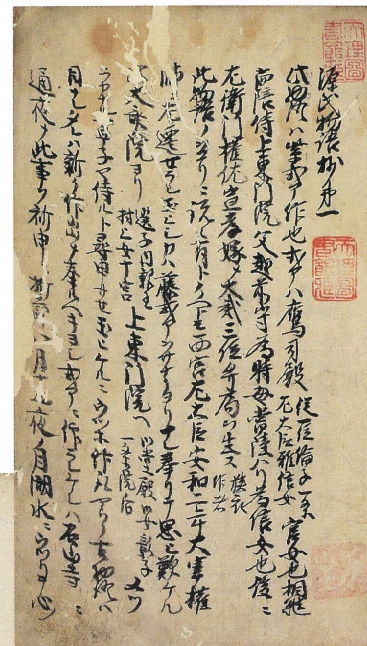 源氏物語抄第一
此物語ハ紫式部カ作也式部ハ鷹司殿 従一位倫子一条左大臣雅信女 官女也相継
而陪侍上東門院父越前守為時母常陸介為信女也後ニ
左衛門権佐宣孝ニ嫁シテ大弐三位弁局ヲ生ス 狭衣作者
此物語ノヲコリニ説々有トイヘトモ西宮左大臣安和二年大宰権
帥ニ左遷セラレ玉シカハ藤式部ヲサナクヨリナレ奉リテ思ヒ歎ケル
比大斎院ヨリ 選子内親王村上女十宮 上東門院ヘ 御堂殿御女彰子一条院后 メツ
ラカナル草子ヤ侍ルト尋申サセ玉ヒケルニウツホ竹取ヤウノ古物語ハ
目ナレタレハ新ク作出シテ奉ヘキヨシ式部ニ仰ラレケレハ石山寺ニ
通夜シテ此事ヲ祈申シ折節八月十五夜ノ月湖水ニウツリテ心